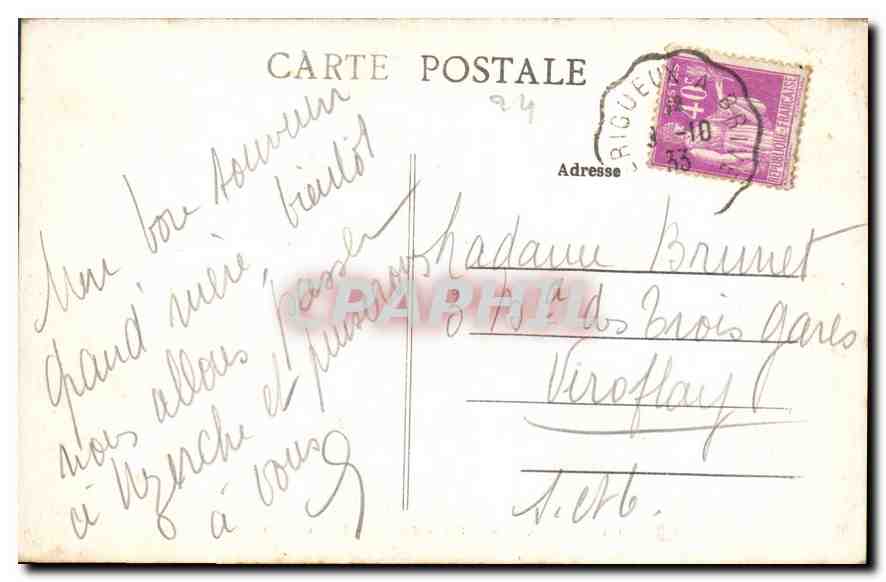 CARTE POSTALE
24
RIGUEUX A BRIVE
-10
33
40c
POSTES
REPUBLIQUE FRANÇAISE
Adresse
Mon bon souvenir
grand'mère, bientôt
nous allons passer
à Uzerche et penserons
à vous
Madame Brunet
3 Bd des Trois Gares
Viroflay
S. et O.
CPAPHIL